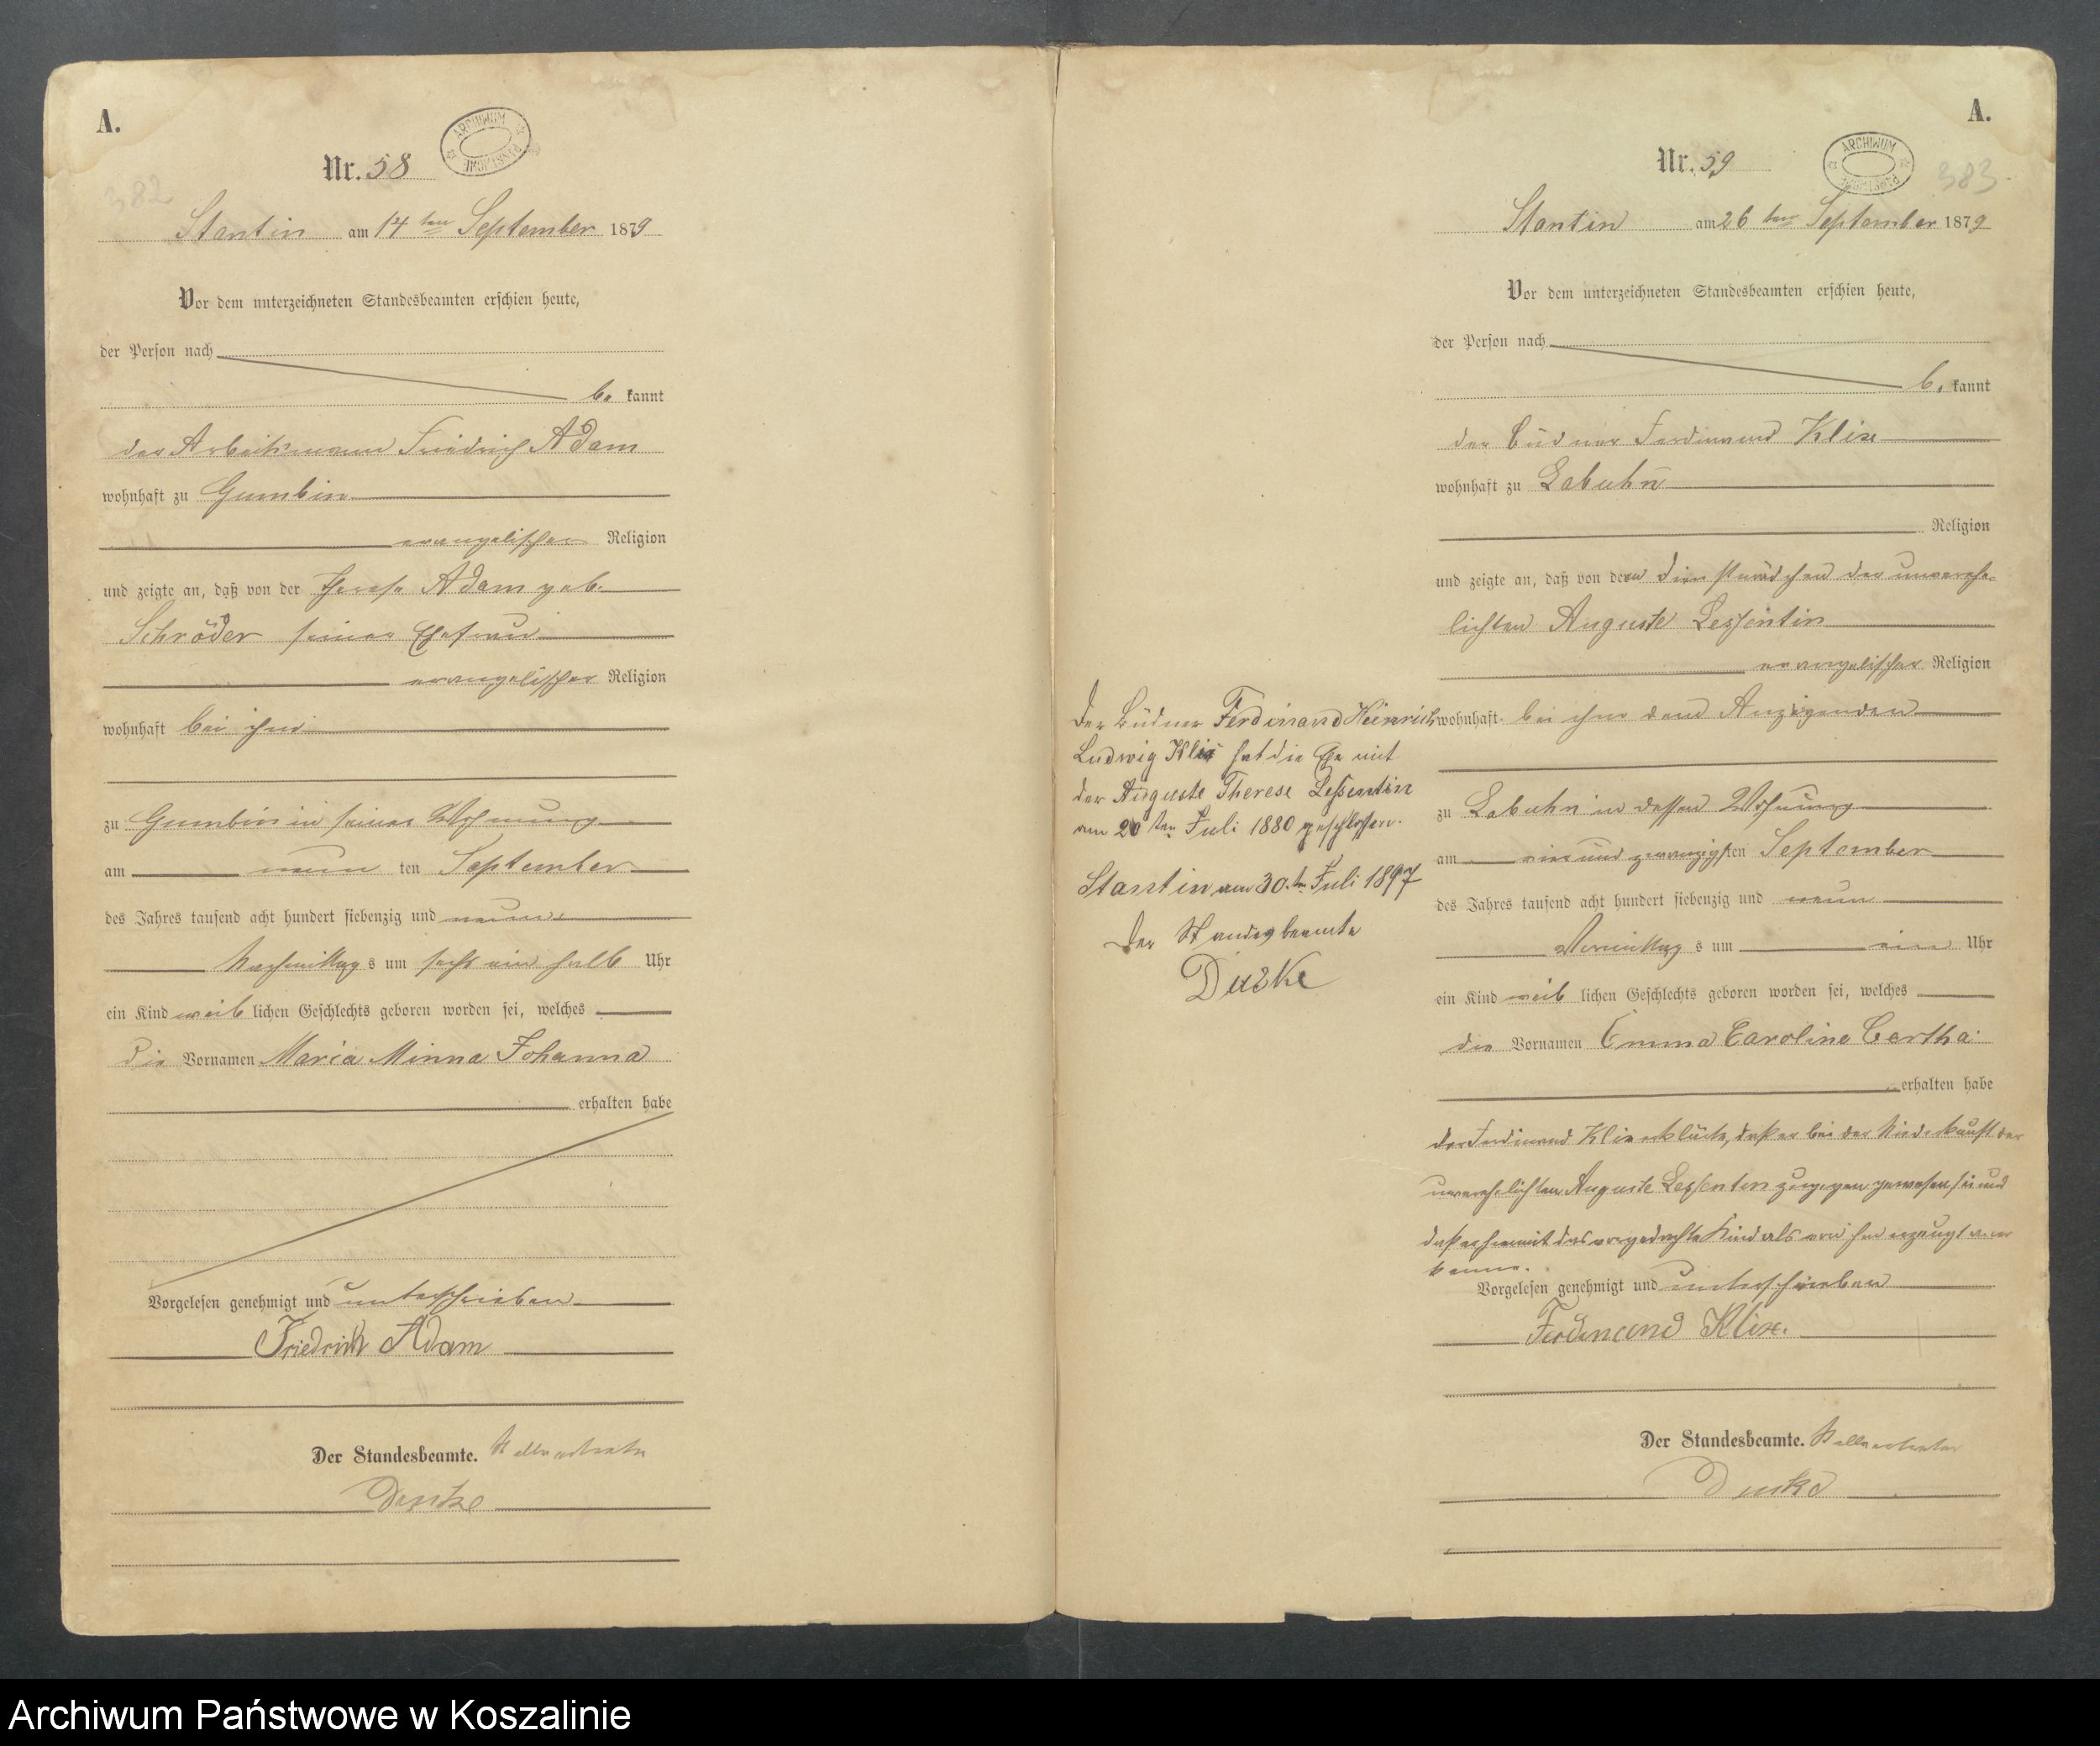 A.
Nr. 58
ARCHIWUM PAŃSTWOWE
382
Stantin am 14ten September 1879
Vor dem unterzeichneten Standesbeamten erschien heute,
der Person nach
be kannt
der Arbeitsmann Friedrich Adam
wohnhaft zu Gumbin
evangelischer Religion
und zeigte an, daß von der Adam geb.
Schröder seiner Ehefrau
evangelischer Religion
wohnhaft bei ihm
zu Gumbin in seiner Wohnung
am neun ten September
des Jahres tausend acht hundert siebenzig und neun
Nachmittag s um sechs ein halb Uhr
ein Kind weib lichen Geschlechts geboren worden sei, welches
die Vornamen Maria Minna Johanna
erhalten habe
Vorgelesen genehmigt und unterschrieben
Friedrich Adam
Der Standesbeamte. Stellvertreter
A.
Nr. 59
ARCHIWUM PAŃSTWOWE
383
Stantin am 26 ten September 1879
Vor dem unterzeichneten Standesbeamten erschien heute,
der Person nach
be kannt
der Büdner Ferdinand Klix
wohnhaft zu Labuhn
Religion
und zeigte an, daß von dem Dienstmädchen der unverehe-
lichten Auguste Lessentin
evangelischer Religion
wohnhaft bei ihm dem Anzeigenden
zu Labuhn in dessen Wohnung
am ein und zwanzigsten September
des Jahres tausend acht hundert siebenzig und neun
Vormittag s um ein Uhr
ein Kind weib lichen Geschlechts geboren worden sei, welches
die Vornamen Emma Caroline Bertha
erhalten habe
der Ferdinand Klix erklärte, daß er bei der Niederkunft der
unverehelichten Auguste Lessentin zugegen gewesen sei und
daß er hiermit das vorgedachte Kind als von ihm erzeugt aner
kenne.
Vorgelesen genehmigt und unterschrieben
Ferdinand Klix.
Der Standesbeamte. Stellvertreter
Der Büdner Ferdinand Heinrich
Ludwig Klix hat die Ehe mit
der Auguste Therese Lessentin
am 20ten Juli 1880 geschlossen.
Stantin am 30.ten Juli 1897
Der Standesbeamte
Archiwum Państwowe w Koszalinie